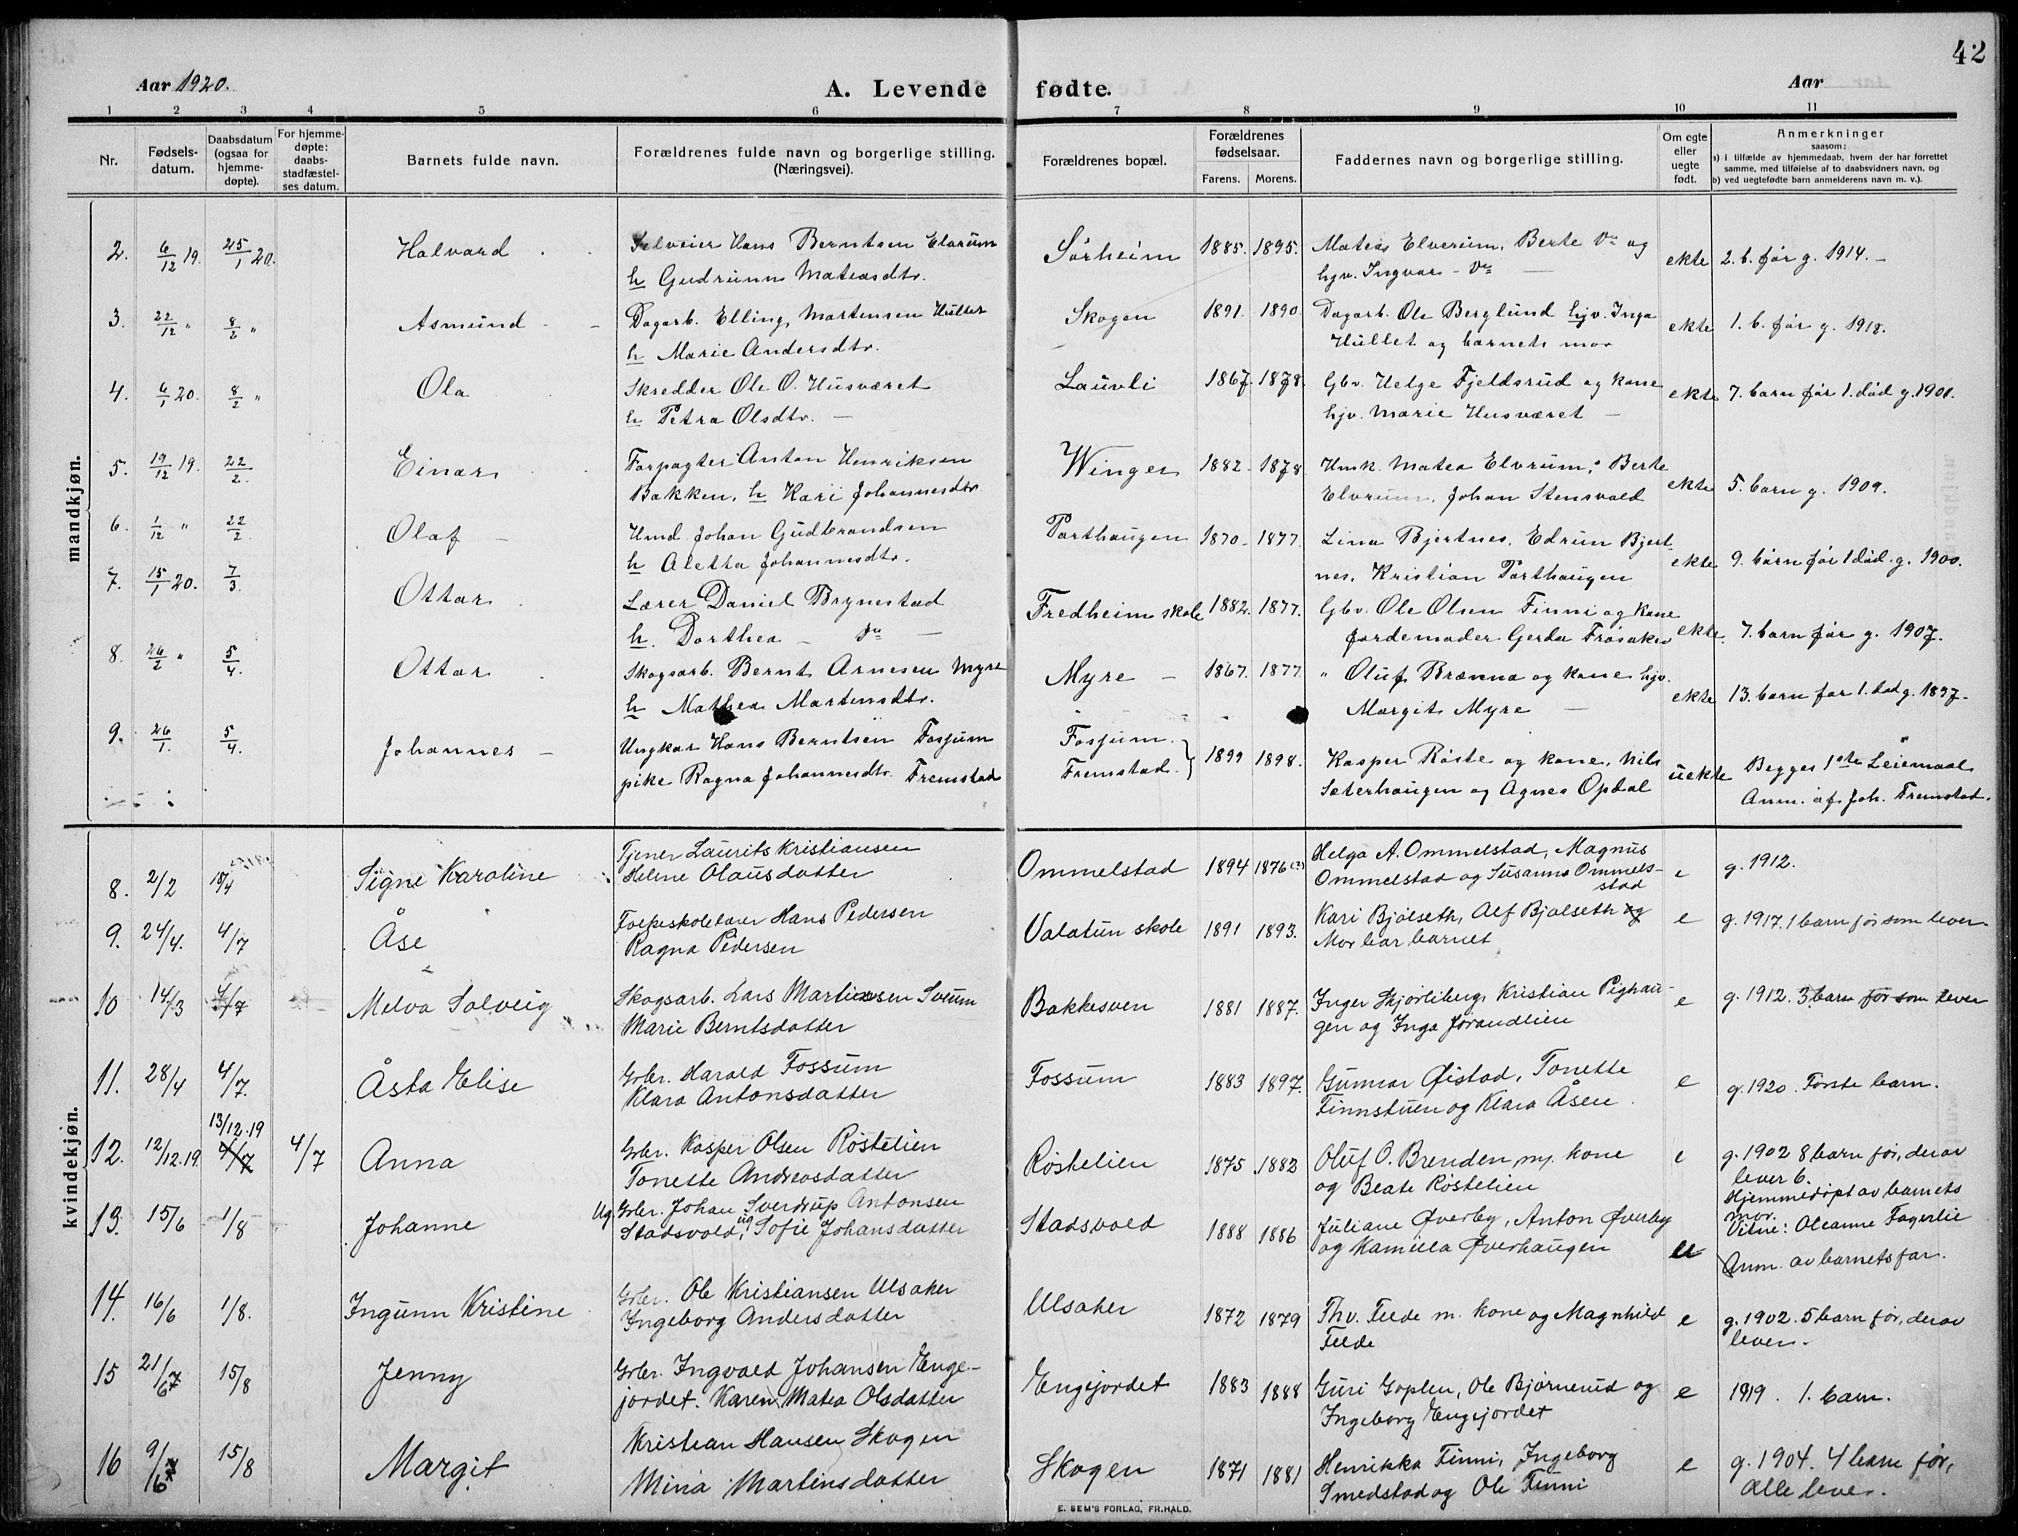 42
Aar 1920. A. Levende fødte. Aar
1 2 3 4 5 6 7 8 9 10 11
Nr. Fødsels-datum. Daabsdatum (ogsaa for hjemme-døpte). For hjemme-døpte: daabs-stadfæstel-ses datum. Barnets fulde navn. Forældrenes fulde navn og borgerlige stilling. (Næringsvei). Forældrenes bopæl. Forældrenes fødselsaar. Farens. Morens. Faddernes navn og borgerlige stilling. Om egte eller uegte født. Anmerkninger saasom: a) i tilfælde av hjemmedaab, hvem der har forrettet samme, med tilføielse af to daabsvidners navn, og b) ved uegtefødte barn anmelderens navn m. v.).
mandkjøn.
2. 6/12 19. 25/1 20. Halvard Selveier Hans Berntsen Elvrum Sørheim 1885. 1895. Mateas Elverum, Berte Do og ekte 2. b. før g. 1914. –
h Gudrunn Mateasdtr. hjv. Ingvar – Do
3. 22/12 " 8/2 " Asmund Dagarb. Elling Martensen Hullet Skogen 1891. 1890. Dagarb. Ole Berglund hjv. Inga ekte 1. b. før g. 1918.
h Marie Andersdtr. Hullet og barnets mor
4. 6/1 20. 8/2 " Ola Skredder Ole O. Husværet Lauvli 1867. 1878. Gbr. Helge Fjeldsrud og kone ekte 7. barn før 1. død g. 1901.
h Petra Olsdtr. – hjv. Marie Husværet –
5. 19/12 19. 22/2. Einar Forpagter Anton Henriksen Winger 1882– 1878 Hmk. Matea Elvrum, Berte ekte 5. barn g. 1909.
Bakken, h Kari Johannesdtr Elvrum, Johan Stensvold
6. 1/12 " 22/2. Olaf – Hmd. Johan Gudbrandsen Porthaugen 1870– 1877. Lina Bjertnes, Edrun Bjert- ekte 9. børn før 1 død. g. 1900.
h Aletta Johannesdtr. nes, Kristian Porthaugen
7. 15/1 20. 7/3. Ottar Lærer Daniel Brynestad Fredheim skole 1882. 1877. Gbr. Ole Olsen Finni og kone ekte. 7. barn før g. 1907.
h. Dorthea – Do – jordemoder Gerda Frøsaker
8. 26/2 " 5/4. Ottar Skogsarb. Bernt Arnesen Myre Myre – 1867. 1877. " Oluf Brænna og kone hjv. ekte 13. barn før 1. død g. 1897.
h Mathea Martensdtr. Margit Myre –
9. 26/1. 5/4. Johannes – Ungkar Hans Berntsen Fossum Fossum. 1899 1898. Kasper Røste og kone, Nils uekte Begges 1ste Leiemaal
pike Ragna Johannesdtr. Fremstad Fremstad. Sæterhaugen og Agnes Opdal Anm. af Joh. Fremstad.
kvindekjøn.
8. 2/2 18/4 Signe Karoline Tjener Laurits Kristiansen Ommelstad 1894 1876 (?) Helga A. Ommelstad, Magnus e g. 1912.
Helene Olausdatter Ommelstad og Susanna Ommels-
stad
9. 24/4. 4/7 Åse Folkeskolelærer Hans Pedersen Valatun skole 1891 1893. Kari Bjølseth, Alf Bjølseth og e g. 1917. 1 barn før som lever
Ragna Pedersen Mor bar barnet
10 14/3 4/7 Melva Solveig Skogsarb. Lars Martinsen Sveum Bakkesven 1881 1887. Inger Skjørliberg, Kristian Pighau- e g. 1912. 3 barn før som lever
Marie Berntsdatter gen og Inga Jørandlien
11. 28/4 4/7. Åsta Elise Grbr. Harald Fossum Fossum 1883 1897. Gunnar Øistad, Tonette e g. 1920. Første barn.
Klara Antonsdatter Finnstuen og Klara Åsen.
13/12.19
12. 12/12.19. 4/7 4/7 Anna Grbr. Kasper Olsen Røstelien Røstelien 1875 1882 Oluf O. Brenden m. kone e g. 1902 8 barn før, derav
Tonette Andreasdatter og Beate Røstelien lever 6.
Hjemmedøpt av barnets
mor.
Vitne: Oleanne Fagerlie
13. 15/6 1/8 Johanne Ug Grbr. Johan Sverdrup Antonsen Stadsvold 1888 1886 Juliane Øverby, Anton Øverby u
Stadsvold, ug Sofie Johansdatter og Kamilla Øverhaugen Anm. av barnets far.
14. 16/6 1/8. Ingunn Kristine Grbr. Ole Kristiansen Ulsaker Ulsaker 1872 1879 Thv. Feede m. kone og Magnhild e g. 1902. 5 barn før, derav
Ingeborg Andersdatter Feede lever.
15 21/6 15/8 Jenny Grbr. Ingvald Johansen Enge- Engejordet 1883 1888 Guri Goplen, Ole Bjørnerud og e 1919. 1. barn.
jordet. Karen Matea Olsdatter Ingeborg Engejordet
16 9/6 15/8 Margit Kristian Hansen Skogen Skogen 1871 1881 Henrikka Finni, Ingeborg e g. 1904. 4 barn før,
Mina Martinsdatter Smedstad og Ole Finni alle lever.
E. SEM'S FORLAG, FR.HALD.